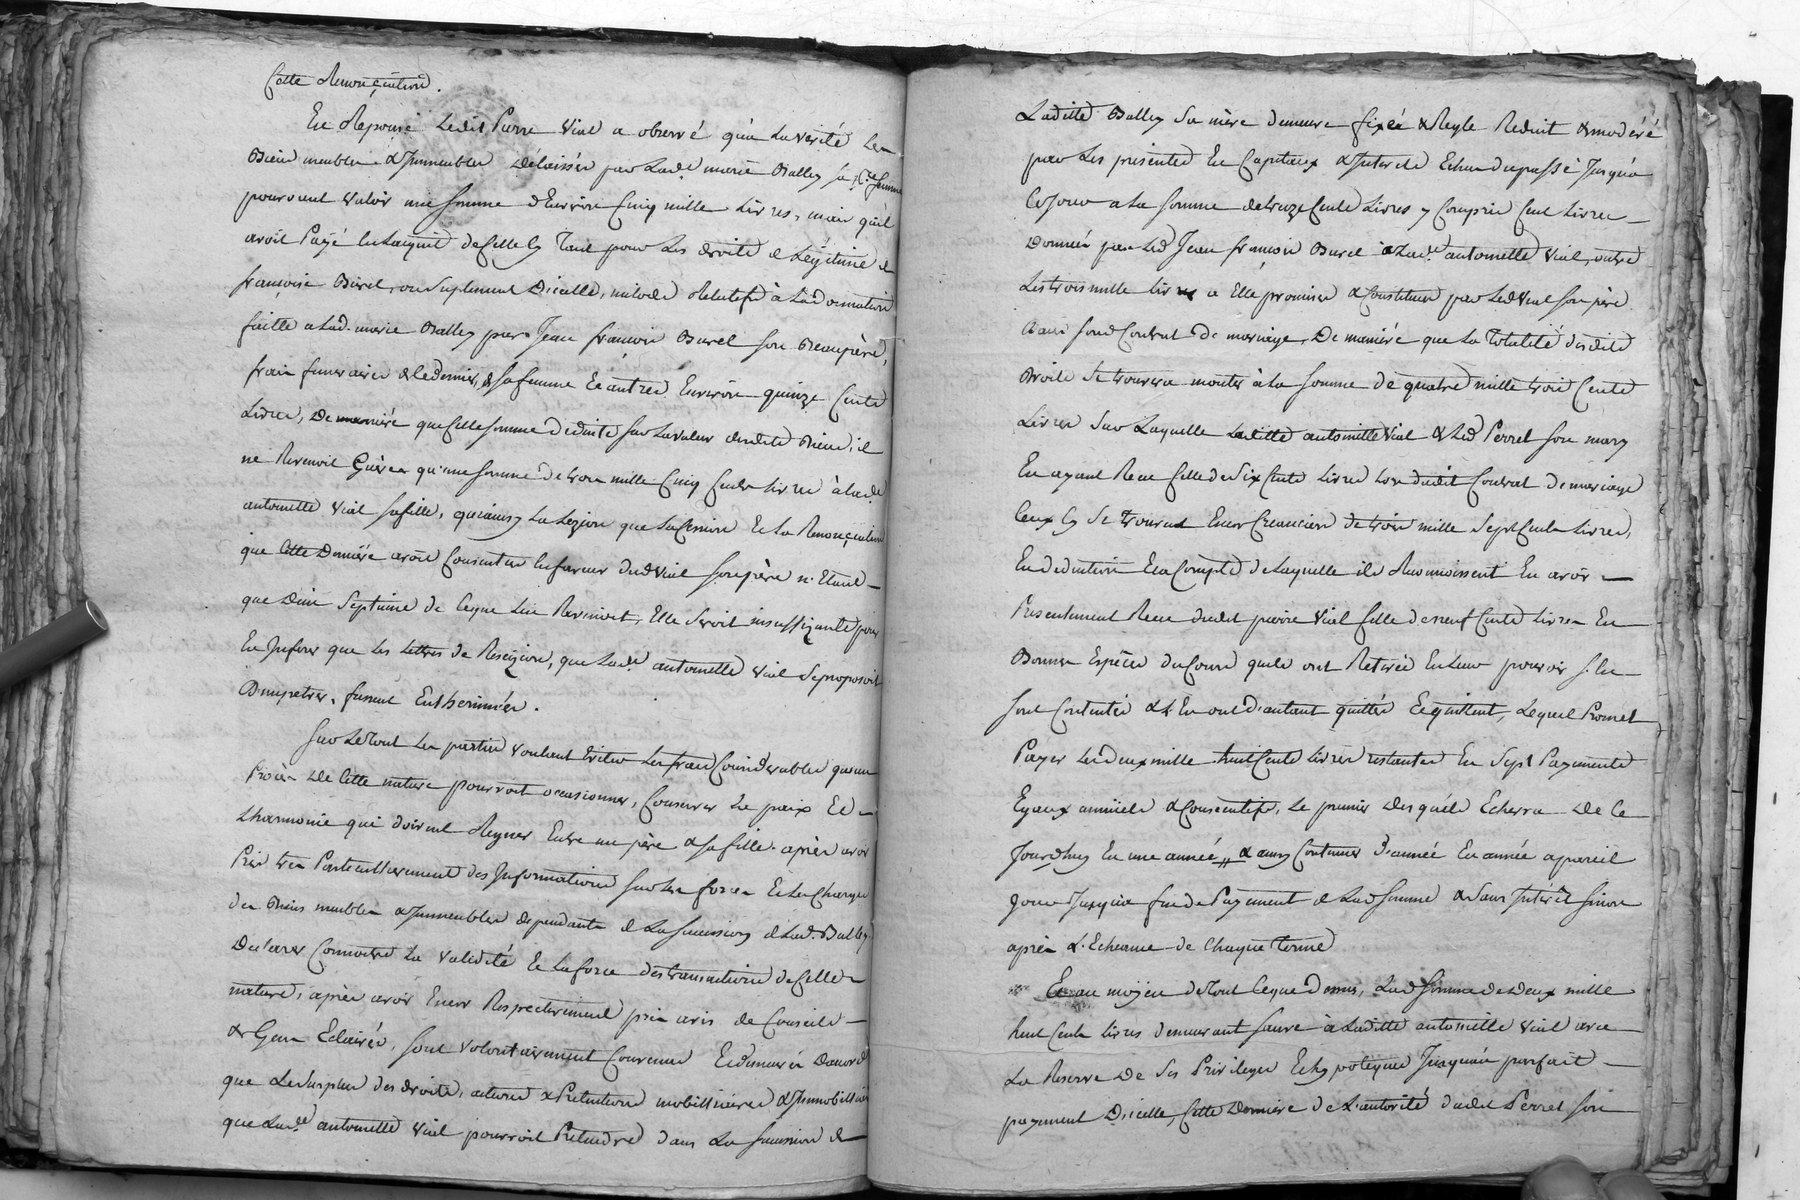 Cette Renonçiation.
En Reponse Ledit Pierre Vial a observé qu'a la vérité Les
Biens meubles & Immeubles délaissés par Lade. marie Balley sa femme
pouroient valoir une somme d'Environ Cinq mille Livres, mais qu'il
avoit Payé En Lacquit de Celle cy Tant pour Les droits de Légitime de
françoise Burel, ou suplement D'icelle, Relatifs à La donnation
faitte a Lad. marie Balley par Jean francois Burel son Beaupère,
frais funeraires de Ce dernier, de sa femme Et autres Environ quinze Cents
Livres, De maniére que Cette somme déduite sur La valeur desdits Biens, il
ne Revenoit Guères qu'une somme de trois mille Cinq Cents Livres à Lade
antoinette Vial sa fille, qu'ainsy La Lezion que La Cession Et La Renonçiation
que Cette Dernière avoit Consenties En faveur dud Vial son père n'Etant
que D'un Septieme de Ce que Lui Revenoit, Elle Seroit insuffizante pour
En Inferer que Les Lettres de Rescizion, que Lade antoinette Vial Se proposoit
D'impetrer, fussent Enthérinnées.
Sur Le Tout Les parties voulant Eviter Les frais Considerables qu'un
Procès De Cette nature pourroit occasionner, Conserver La paix Et
L'harmonie qui doivent Regner Entre un père & sa fille. après avoir
Pris très Particulièrement des Informations sur Les forces Et Les Charges
des Biens meubles & Immeubles dépendants de La Succession de Lad. Balley
De Leur Connoitre La validité Et La force des transactions de Celle
nature, après avoir Encor Respectivement pris avis de Conseils
& Gens Eclairés, sont volontairement Convenus Et demeurés D'accord
que Le Surplus des droits, actions & Pretentions mobilliaires & Immobilliaires
que Lade antoinette Vial pourroit Pretendre dans La Succession de
Laditte Balley Sa mère demeure fixée & Reglé Reduit & modéré
par Les présentes En Capitaux & Interets Echus du passé Jusqu'à
Ce Jour a La somme de treize Cents Livres y Compris Cent Livres
Données par Led Jean francois Burel à Lade antoinette Vial, outre
Les trois mille Livres a Elle promises & Constituées par Led Vial son père
dans sond Contrat De mariage, De maniére que La Totalité desdits
Droits Se trouvera monter à La somme de quatre mille trois Cents
Livres Sur Laquelle Laditte antoinette Vial & Led Perret son mary
En ayant Reçu Celle de Six Cents Livres Lors dudit Contrat De mariage
Ceux Cy Se trouvent Encor Creanciers de trois mille Sept Cents Livres,
En deduction Et a Compte de Laquelle ils Reconnoissent En avoir
Présentement Reçu dudit pierre Vial Celle de neuf Cents Livres En
Bonnes Espèces du Cours qu'ils ont Retirée En Leur pouvoir S'en
sont Contentés & L'En ont d'autant quittés Et quittent, Lequel Promet
Payer Les deux mille huit Cents Livres restantes En Sept Payements
Egaux annüels & Consecutifs, Le premier Desquels Echerra De Ce
Jourd'huy En une année,, & ainsy Continuer d'année En année a pareil
Jour Jusqu'à fin de Payement de Lad Somme & Sans Intérêt Sinon
après L'Echeance de Chaque Terme
Et au moyen de Tout Ce que Dessus, Lad Somme de Deux mille
huit Cents Livres demeurant sauve à Laditte antoinette Vial avec
La Reserve De Ses Privileges Et hypoteques Jusqu'à parfait
payement D'icelle, Cette Dernière de L'autorité dudit Perret Son